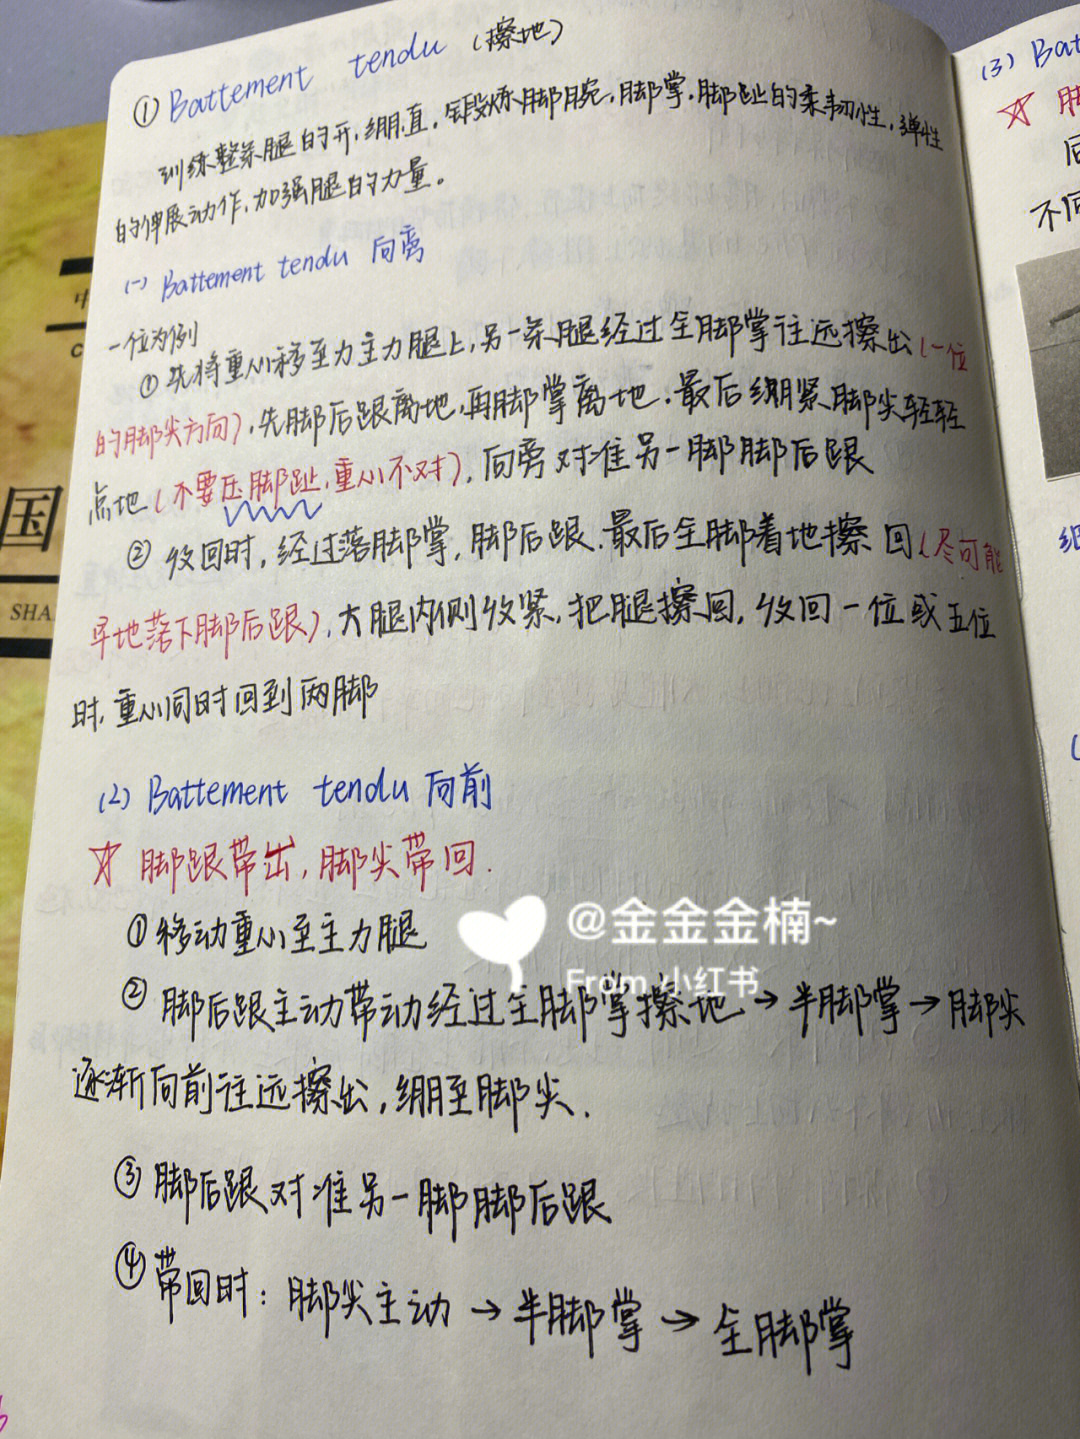 ① Battement tendu (擦地)
训练整条腿的开,绷,直,锻炼脚腕,脚掌,脚趾的柔韧性,弹性
的伸展动作,加强腿的力量。
(一) Battement tendu 向旁
一位为例
① 先将重心移至力主力腿上,另一条腿经过全脚掌往远擦出(一位
的脚尖方向),先脚后跟离地,再脚掌离地,最后绷紧脚尖轻轻
点地(不要压脚趾,重心不对),向旁对准另一脚脚后跟
② 收回时,经过落脚掌,脚后跟.最后全脚着地擦回(尽可能
早地落下脚后跟),大腿内侧收紧,把腿擦回,收回一位或五位
时,重心同时回到两脚
(2) Battement tendu 向前
☆ 脚跟带出,脚尖带回.
① 移动重心至主力腿
② 脚后跟主动带动经过全脚掌擦地→半脚掌→脚尖
逐渐向前往远擦出,绷至脚尖.
③ 脚后跟对准另一脚脚后跟
④ 带回时:脚尖主动→半脚掌→全脚掌
@金金金楠~
From 小红书
(3) Bat
☆ 脚
后
不同
国
SHA